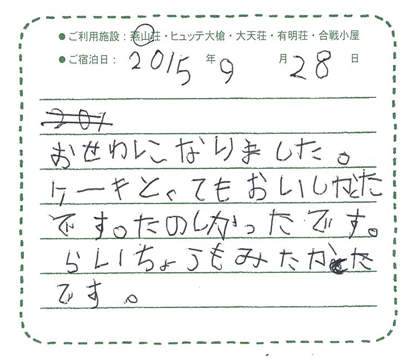 ●ご利用施設：燕山荘・ヒュッテ大槍・大天荘・有明荘・合戦小屋
●ご宿泊日：2015年9月28日
201
おせわになりました。
ケーキとってもおいしかった
です。たのしかったです。
らいちょうもみたかった
です。